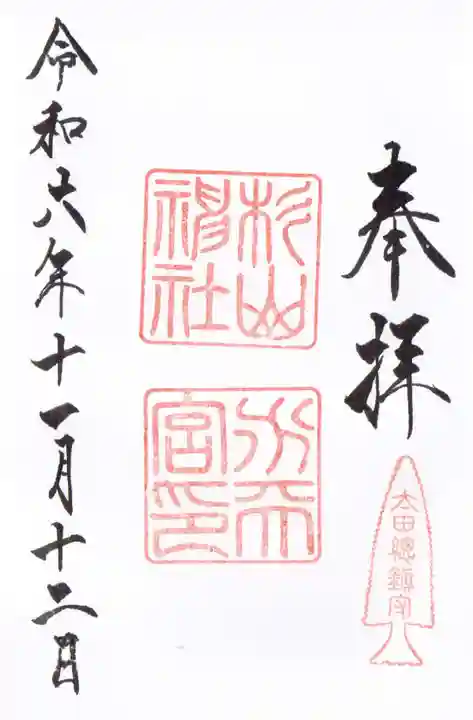 奉拝
太田總鎮守
杉山
神社
水天
宮印
令和六年十一月十二日